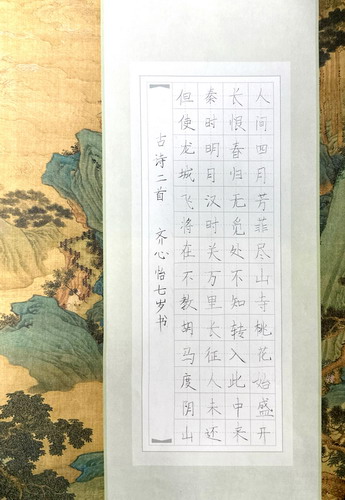 人间四月芳菲尽山寺桃花始盛开
长恨春归无觅处不知转入此中来
秦时明月汉时关万里长征人未还
但使龙城飞将在不教胡马度阴山
古诗二首 齐心怡七岁书